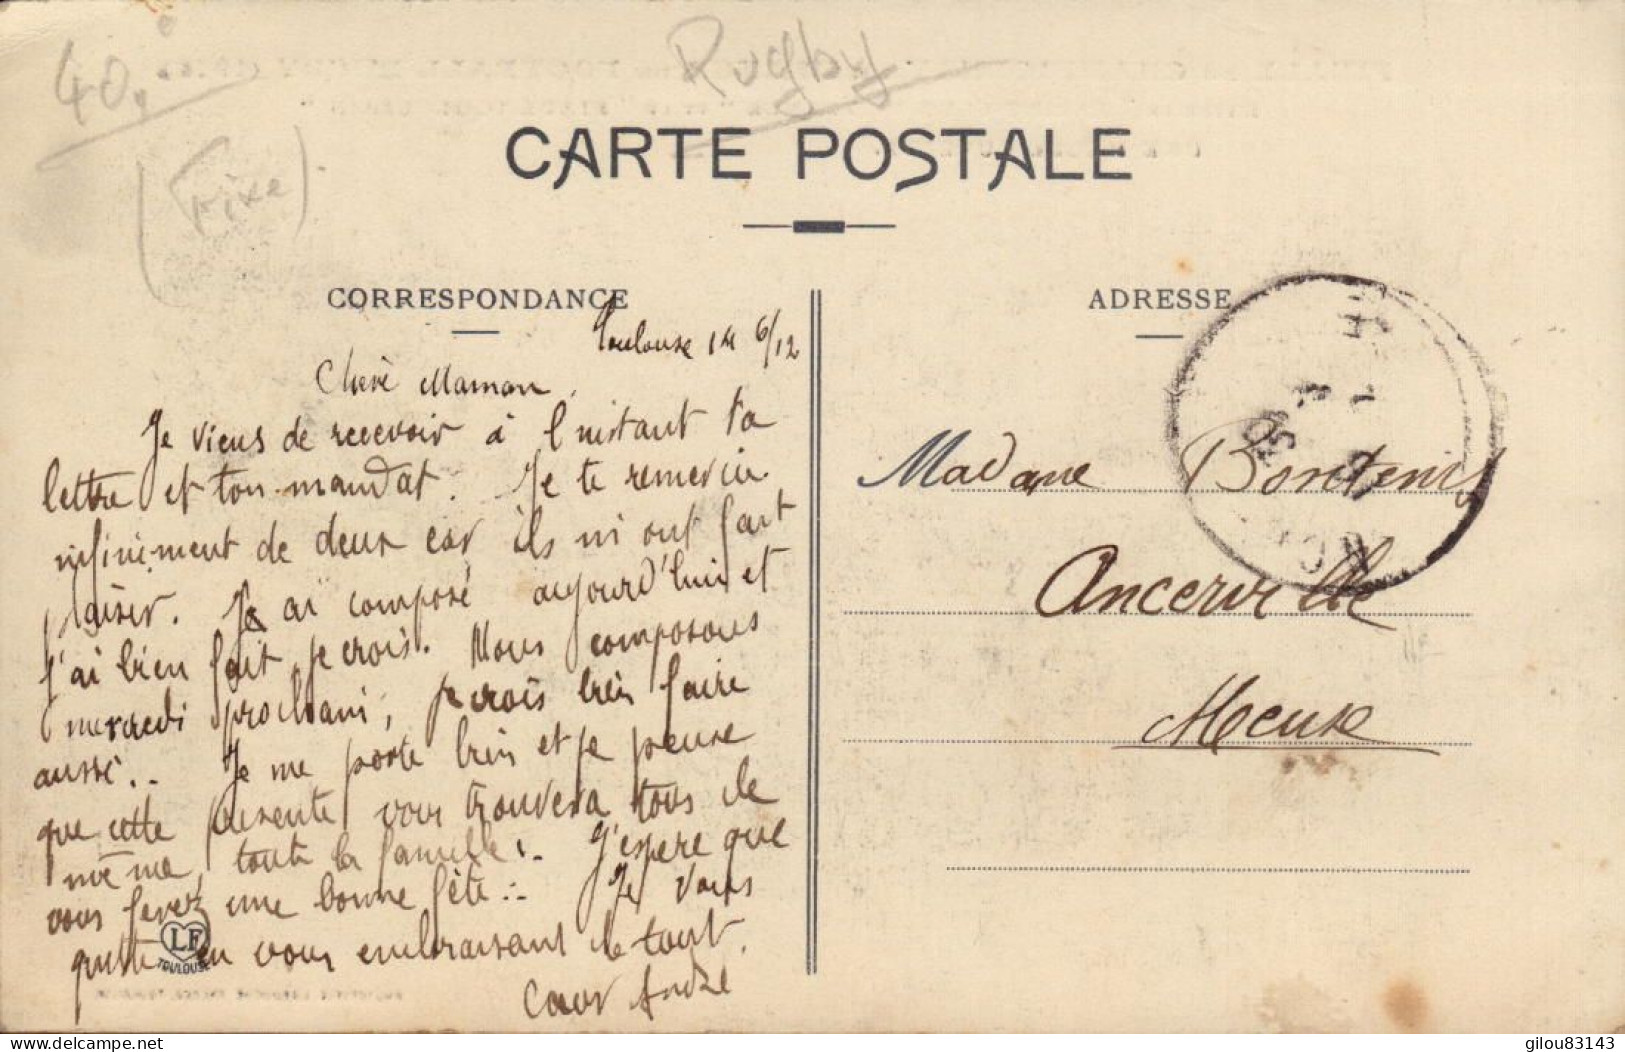 40.
Rugby
(Fixe)
CARTE POSTALE
CORRESPONDANCE
ADRESSE
Toulouse 14 6/12
Chère Maman.
Je viens de recevoir à l'instant ta
lettre et ton mandat. Je te remercie
infiniment de deux car ils m'ont fait
plaisir. Je ai composé aujourd'hui et
j'ai bien fait je crois. Nous composons
mercredi prochain, je crois bien faire
aussi.. Je me porte bien et je pense
que cette présente vous trouvera tous de
même, toute la famille. J'espère que
vous ferez une bonne fête.. Je vous
quitte en vous embrassant de tout
Cœur André
Madame
Ancerville
Meuse
LF
TOULOUSE
delcampe.net
gilou83143